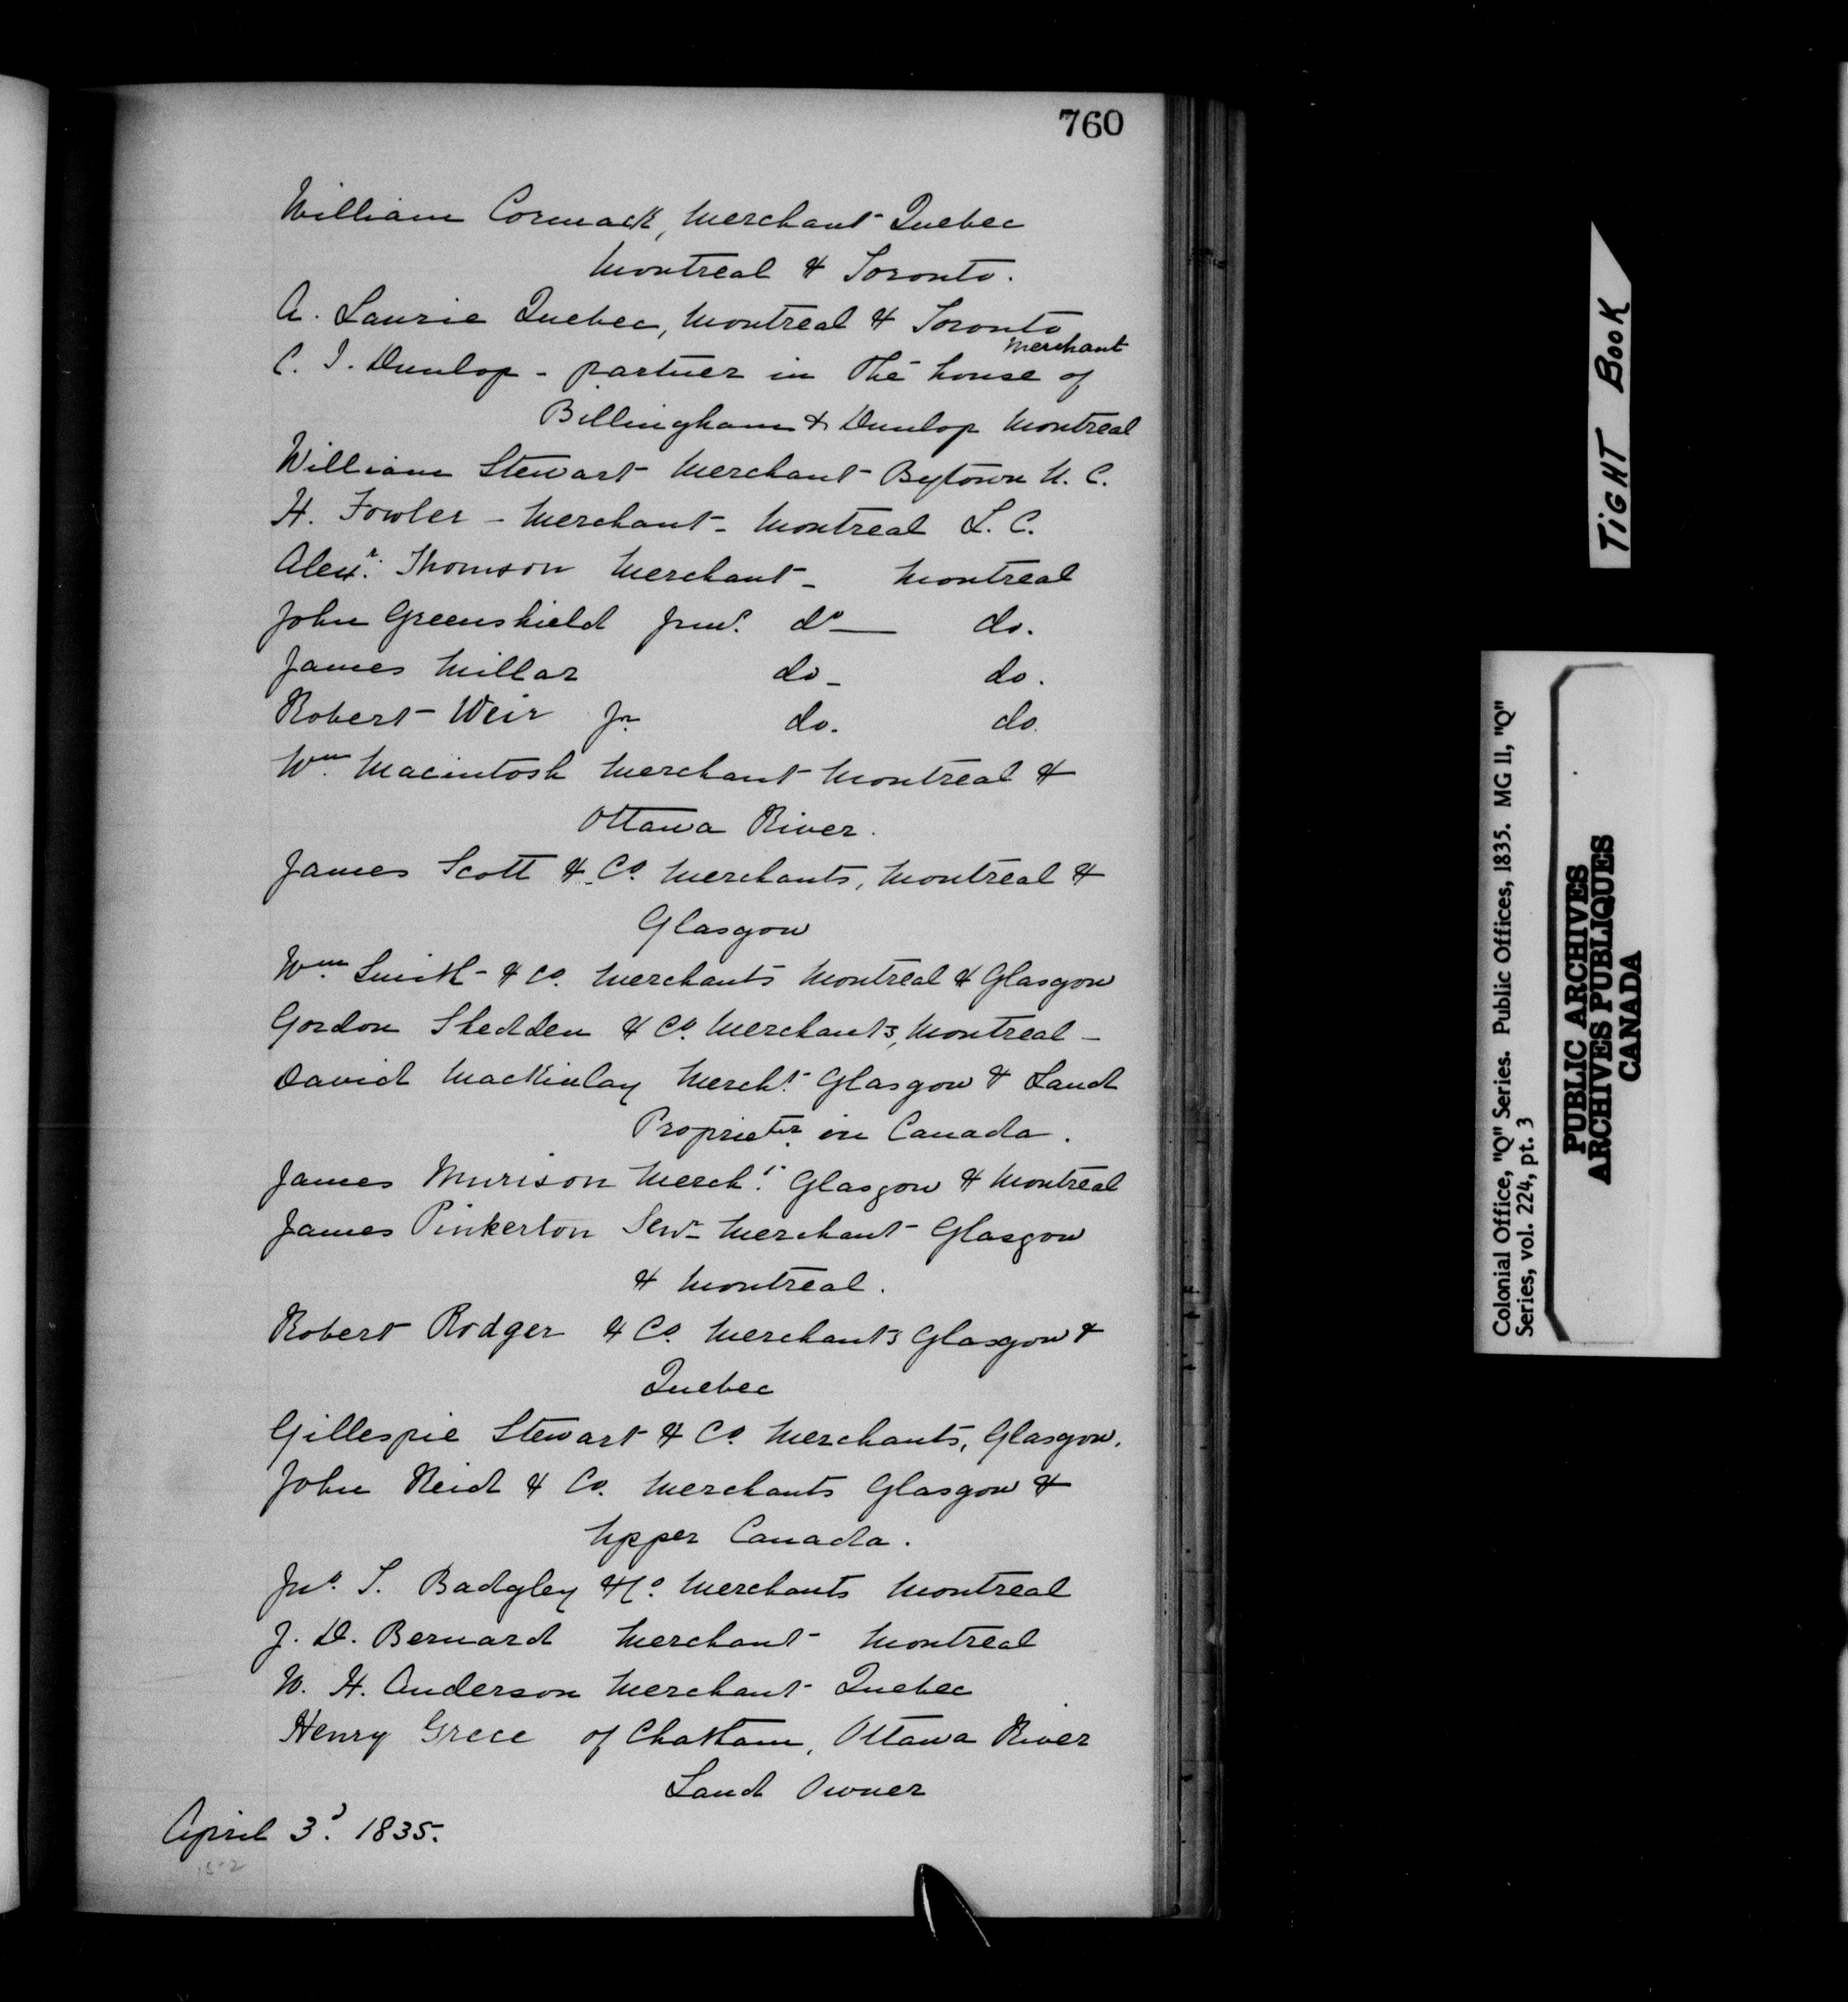 760
William Cormack, Merchant Quebec
Montreal & Toronto.
A. Laurie Quebec, Montreal & Toronto
Merchant
C. I. Dunlop - partner in the house of
Billingham & Dunlop Montreal
William Stewart Merchant Bytown U. C.
H. Fowler - Merchant - Montreal L. C.
Alexr. Thomson Merchant - Montreal
John Greenshield Junr. do — do.
James Millar do - do.
Robert Weir Jr. do. do.
Wm. Macintosh Merchant Montreal &
Ottawa River.
James Scott & Co. Merchants, Montreal &
Glasgow
Wm. Smith & Co. Merchants Montreal & Glasgow
Gordon Shedden & Co. Merchants, Montreal -
David MacKinlay Mercht. Glasgow & Land
Proprietr. in Canada.
James Murison Mercht. Glasgow & Montreal
James Pinkerton Senr. Merchant Glasgow
& Montreal.
Robert Rodger & Co. Merchants Glasgow &
Quebec
Gillespie Stewart & Co. Merchants, Glasgow.
John Reid & Co. Merchants Glasgow &
Upper Canada.
Jno. T. Badgley & Co. Merchants Montreal
J. D. Bernard Merchant Montreal
W. H. Anderson Merchant Quebec
Henry Grece of Chatham, Ottawa River
Land Owner
April 3d. 1835.
TIGHT BOOK
Colonial Office, "Q" Series. Public Offices, 1835. MG 11, "Q"
Series, vol. 224, pt. 3
PUBLIC ARCHIVES
ARCHIVES PUBLIQUES
CANADA